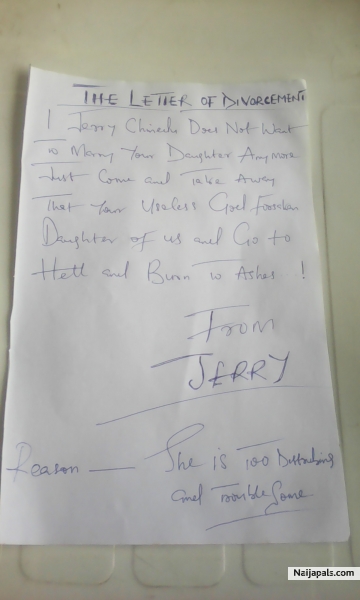 THE LETTER OF DIVORCEMENT
I Jerry Chinedu Does Not Want
to Marry Your Daughter Anymore
Just Come and Take Away
That Your Useless God Forsaken
Daughter of us and Go to
Hell and Burn to Ashes !
From
JERRY
Reason — She is Too Disturbing
and Trouble Some
Naijapals.com